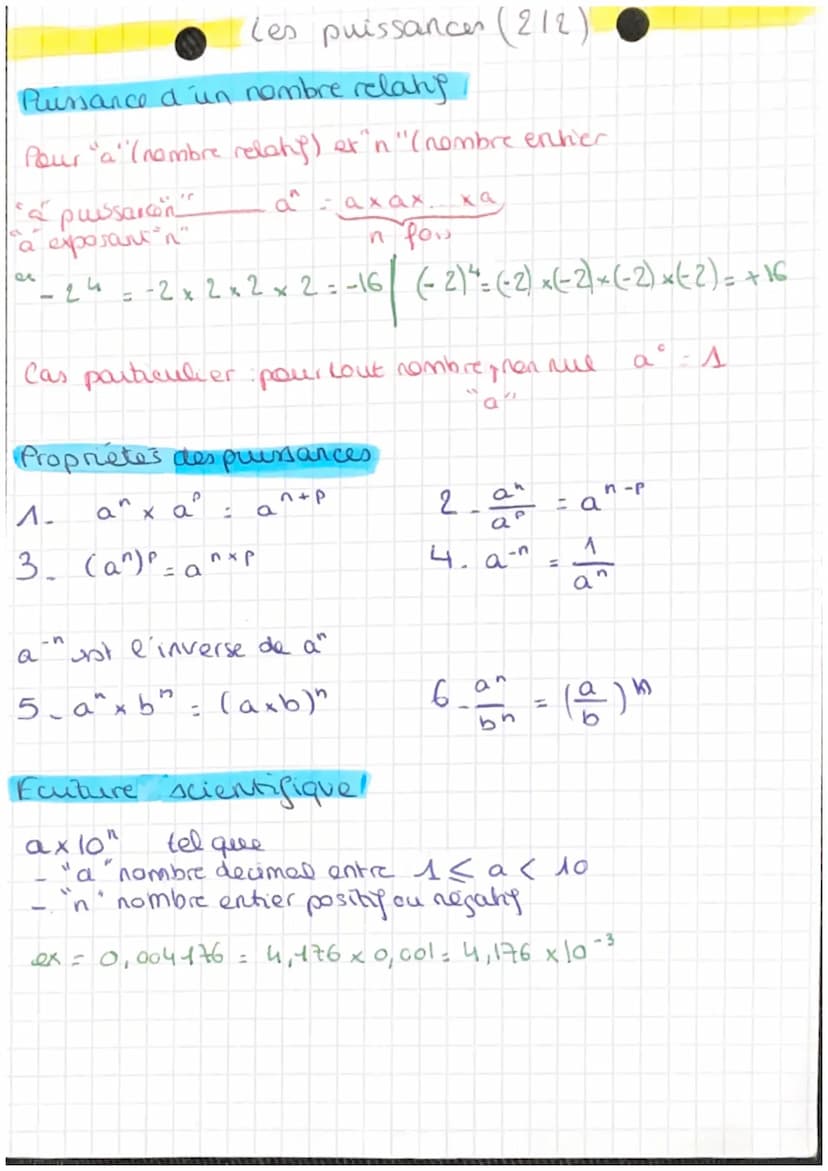 Les puissances (2/2)
Puissance d'un nombre relatif
Pour "a" (nombre relatif) et "n" (nombre entier
"a" puissance "n" aⁿ = a × a × ... × a
"a" exposant "n" n fois
ex -2⁴ = -2 × 2 × 2 × 2 = -16 | (-2)⁴ = (-2) × (-2) × (-2) × (-2) = +16
Cas particulier : pour tout nombre, non nul a⁰ = 1
"a"
Propriétés des puissances
1- aⁿ × aᵖ = aⁿ⁺ᵖ 2- aⁿ/aᵖ = aⁿ⁻ᵖ
3- (aⁿ)ᵖ = aⁿˣᵖ 4. a⁻ⁿ = 1/aⁿ
a⁻ⁿ est l'inverse de aⁿ
5- aⁿ × bⁿ = (a×b)ⁿ 6- aⁿ/bⁿ = (a/b)ⁿ
Ecriture scientifique
a × 10ⁿ tel que
- "a" nombre decimal entre 1 ≤ a < 10
- "n" nombre entier positif ou négatif
ex = 0,004176 = 4,176 × 0,001 = 4,176 × 10⁻³